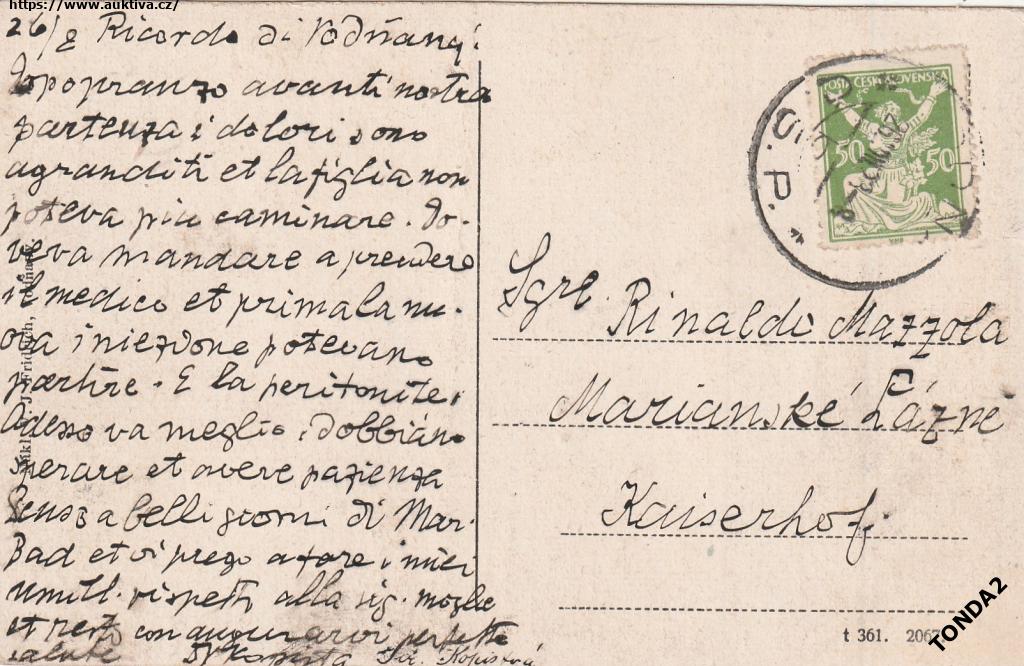 https://www.auktiva.cz/
26/8 Ricordo di Vodňany!
Dopopranzo avanti nostra
partenza i dolori sono
agranditi et la figlia non
poteva piu caminare. Do-
veva mandare a prendere
il medico et prima la nu-
ova iniezione potevano
partire. E la peritonite.
Adesso va meglio, dobbiamo
sperare et avere pazienza
Penso a belli giorni di Mar-
Bad et vi prego a fare i miei
umill. rispetti alla sig. moglie
et resto con augurarvi perfetta
salute
J. Fridrich, Vodňany
POŠTA ČESKOSLOVENSKA
50 50
Sgre. Rinaldo Mazzola
Marianské Lázně
Kaiserhof
t 361. 2067
TONDA2